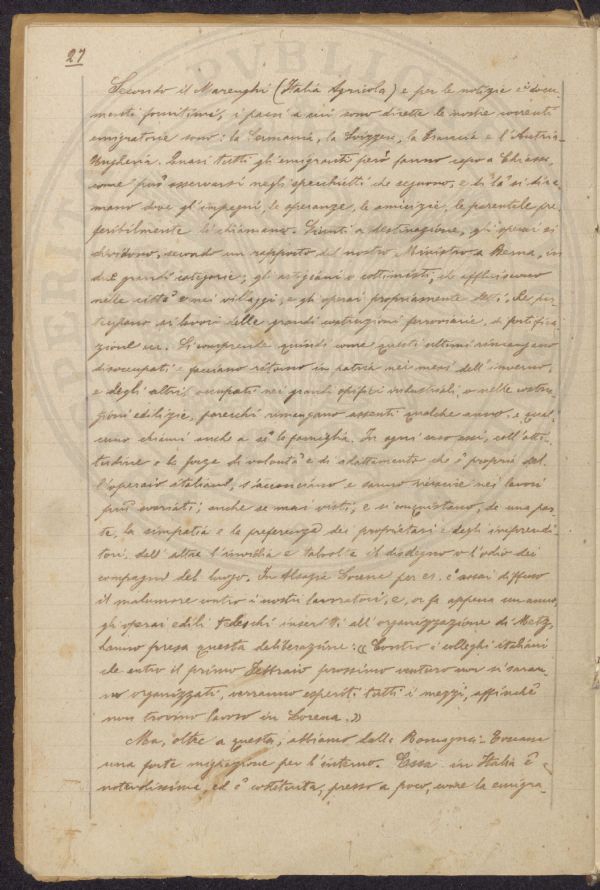 27
Secondo il Marenghi (Italia Agricola) e per le notizie e docu-
menti fornitimi, i paesi a cui sono dirette le nostre correnti
emigratorie sono: la Germania, la Svizzera, la Francia e l'Austria-
Ungheria. Quasi tutti gli emigranti però fanno capo a Chiasso,
come può osservarsi negli specchietti che seguono, e di là si dira-
mano dove gl'impegni, le speranze, le amicizie, le parentele pre-
feribilmente li chiamano. Giunti a destinazione, gli operai si
dividono, secondo un rapporto del nostro Ministro a Berna, in
due grandi categorie; gli artigiani o cottimisti, che affluiscono
nelle città e nei villaggi, e gli operai propriamente detti, che par-
tecipano ai lavori delle grandi costruzioni ferroviarie, di fortifica-
zione ecc. Si comprende quindi come questi ultimi rimangano
disoccupati e facciano ritorno in patria nei mesi dell'inverno,
e degli altri, occupati nei grandi opifici industriali, o nelle costru-
zioni edilizie, parecchi rimangano assenti qualche anno, e qual-
cuno chiami anche a sè la famiglia. In ogni caso essi, coll'atti-
tudine e la forza di volontà e di adattamento che è propria del-
l'operaio italiano, s'acconciano e sanno riuscire nei lavori
più svariati; anche se mai visti; e si conquistano, da una par-
te, la simpatia e la preferenza dei proprietari e degli imprendi-
tori, dall'altra l'invidia e talvolta il disdegno o l'odio dei
compagni del luogo. In Alsazia Lorena per es. è assai diffuso
il malumore contro i nostri lavoratori, e, or fa appena un anno,
gli operai edili tedeschi inscritti all'organizzazione di Metz,
hanno presa questa deliberazione: «Contro i colleghi italiani
che entro il primo Febbraio prossimo venturo non si saran-
no organizzati, verranno esperiti tutti i mezzi, affinchè
non trovino lavoro in Lorena.»
Ma, oltre a questa, abbiamo dalla Romagna-Toscana
una forte migrazione per l'interno. Essa in Italia è
notevolissima, ed è costituita, presso a poco, come la emigra-